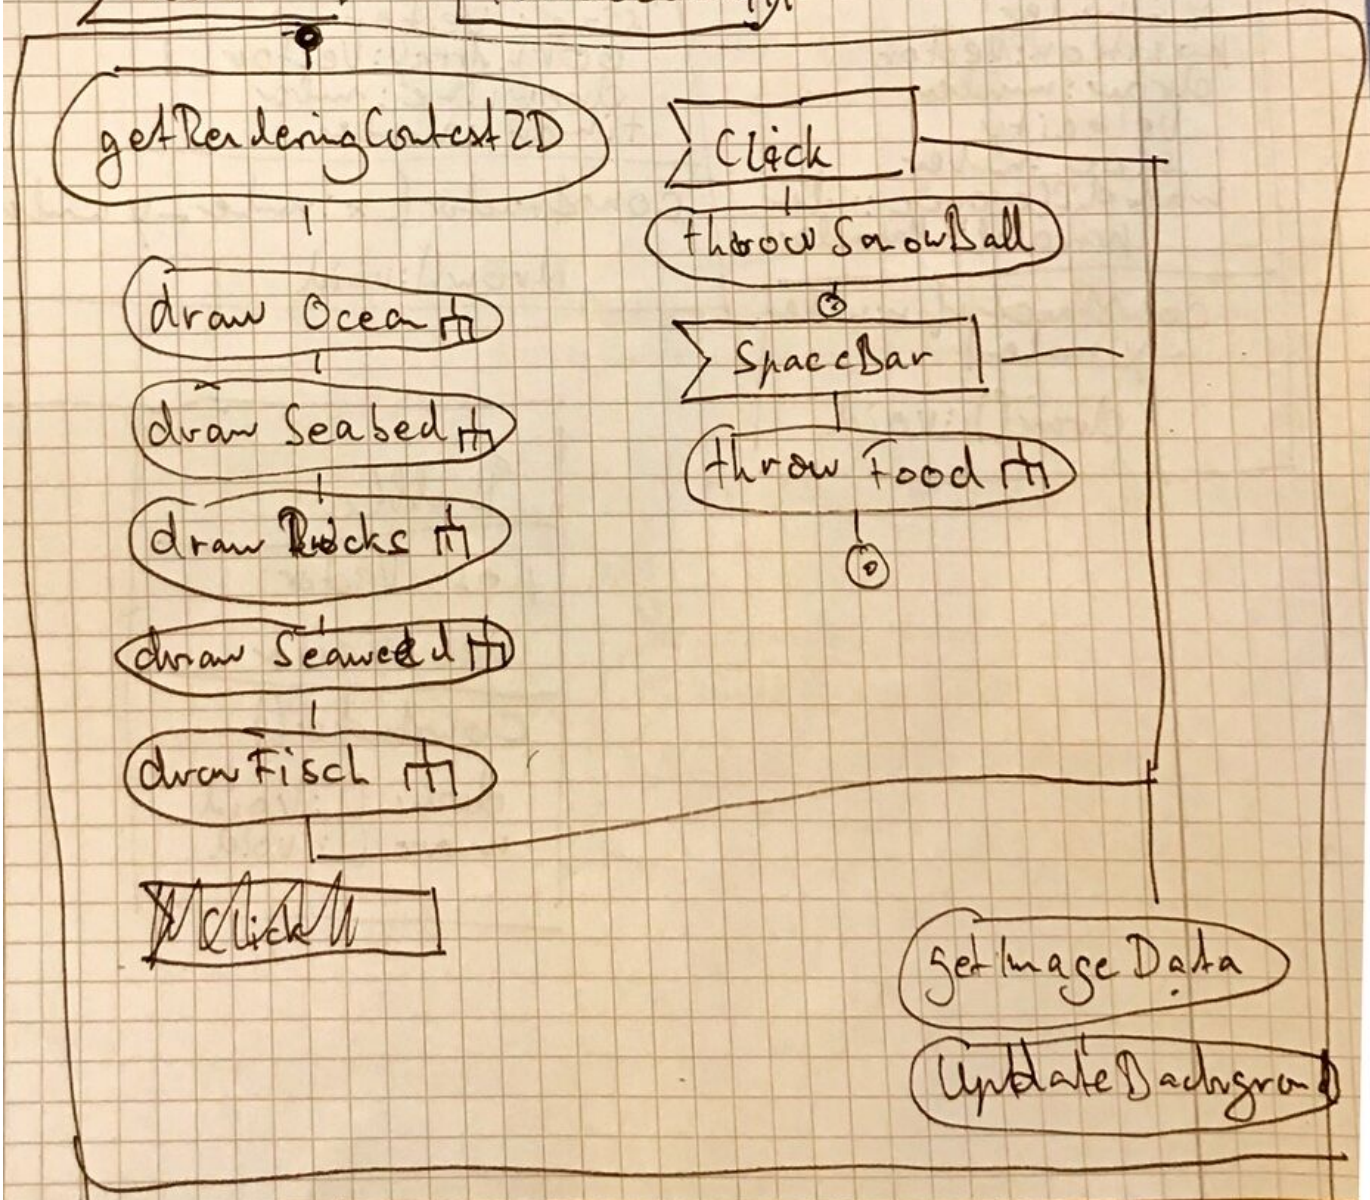 getRenderingContext2D
draw Ocean
draw Seabed
draw Rocks
draw Seaweed
draw Fisch
Click
throw SnowBall
SpaceBar
throw Food
Click
getImageData
UpdateBackground